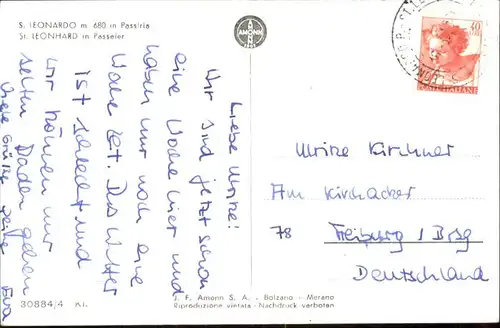 S. LEONARDO m. 680 in Passiria
St. LEONHARD in Passeier
AMONN
40
POSTE ITALIANE
Liebe Ulrike!
Wir sind jetzt schon
eine Woche hier und
haben nur noch eine
Woche Zeit. Das Wetter
ist schlecht und
wir können nur
selten Baden gehen
Viele Grüße Eva
Ulrike Kirchner
Am Kirchacker
78 Freiburg / Brsg
Deutschland
30884/4 Kl.
J. F. Amonn S. A. - Bolzano - Merano
Riproduzione vietata - Nachdruck verboten